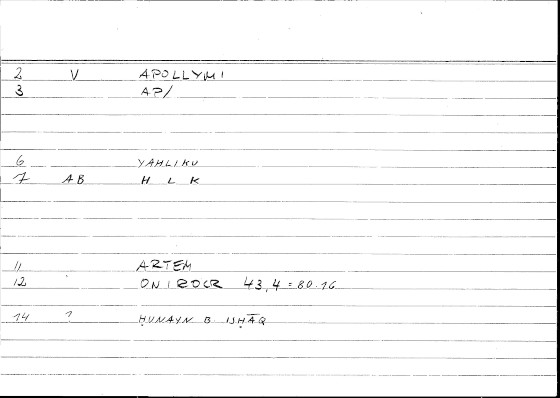 2 V APOLLYMI
3 AP/
6 YAHLIKU
7 AB H L K
11 ARTEM
12 ONIROCR 43,4 = 80.16
14 ? ḤUNAYN B. ISḤĀQ